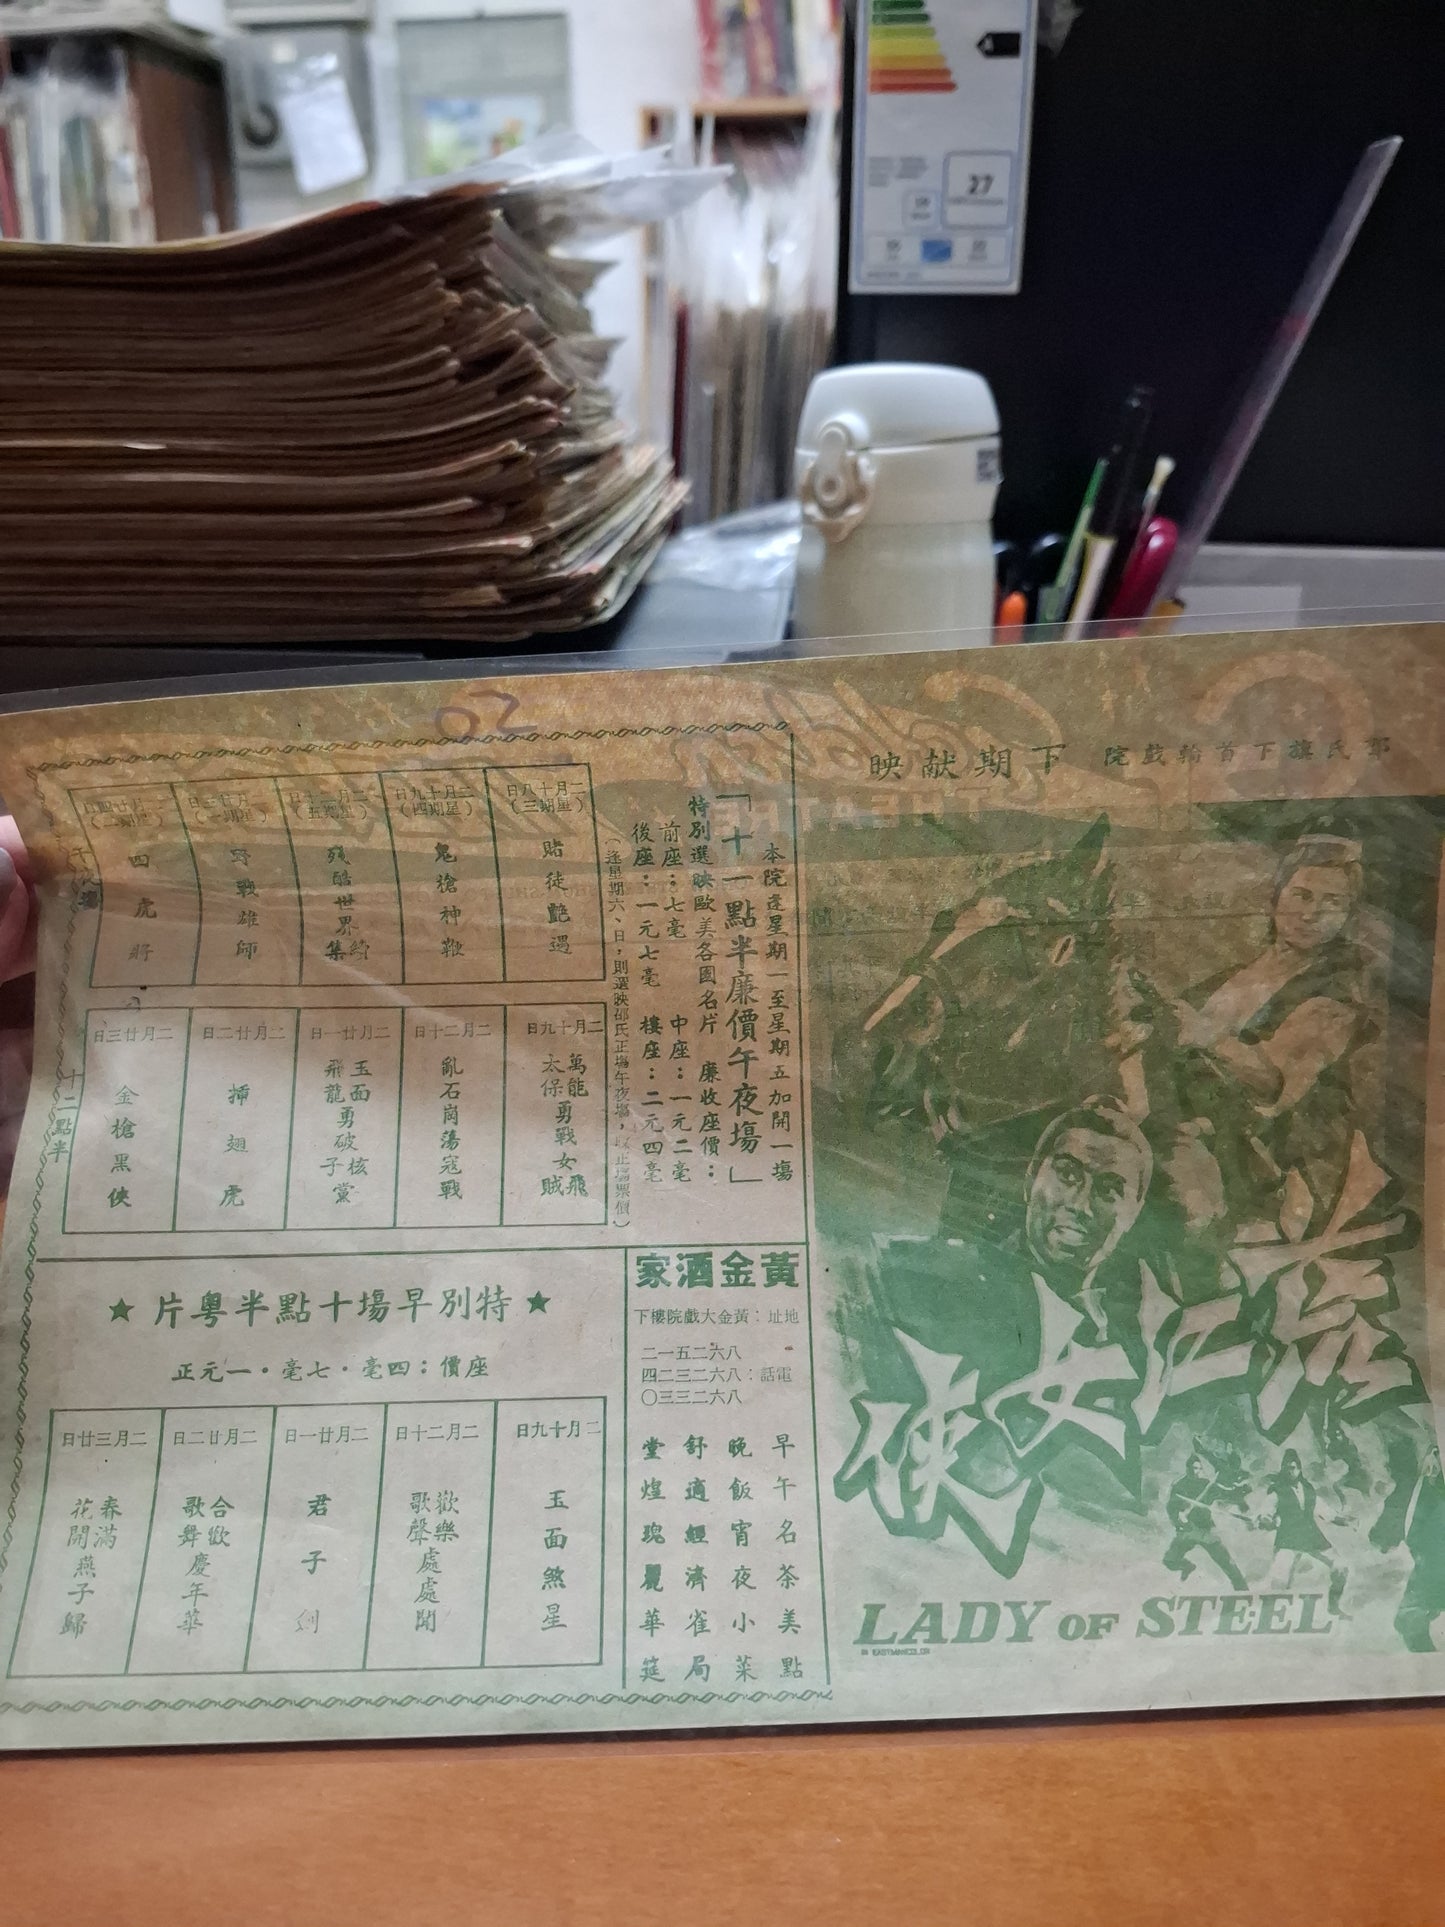 27
50
郭氏旗下首輪戲院
下期献映
荒江女俠
LADY OF STEEL
IN EASTMANCOLOR
本院逢星期一至星期五加開一塲
「十一點半廉價午夜塲」
特別選映歐美各國名片 廉收座價:
前座:七毫 中座:一元二毫
後座:一元七毫 樓座:二元四毫
(逢星期六、日,則選映邵氏正塲午夜塲,以正塲票價)
二月十八日(星期三)
賭徒艷遇
二月十九日(星期四)
鬼槍神鞭
二月二十日(星期五)
殘酷世界續集
二月廿三日(星期一)
野戰雄師
二月廿四日(星期二)
四虎將
二月十九日
萬能太保勇戰女飛賊
二月二十日
亂石崗蕩寇戰
二月廿一日
玉面飛龍勇破核子黨
二月廿二日
插翅虎
二月廿三日
金槍黑俠
十二點半
★特別早場十點半粵片★
座價:四毫・七毫・一元正
二月十九日
玉面煞星
二月二十日
歡樂歌聲處處聞
二月廿一日
君子劍
二月廿二日
合歡歌舞慶年華
二月三廿日
春滿花開燕子歸
黃金酒家
地址:黃金大戲院樓下
八六二五一二
電話:八六二三二四
八六二三三〇
早午名茶美點
晚飯宵夜小菜
舒適經濟雀局
堂煌瑰麗華筵